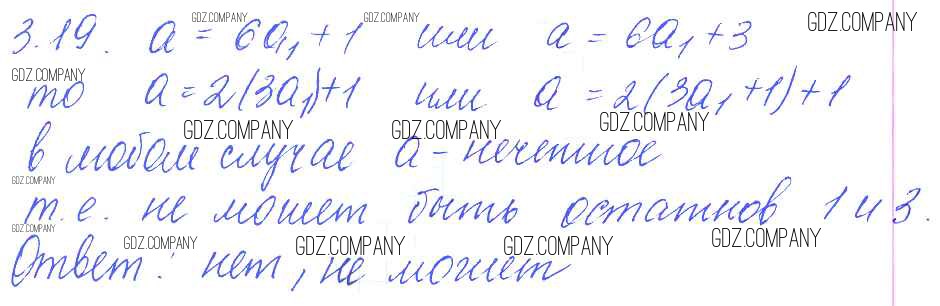 GDZ.COMPANY GDZ.COMPANY GDZ.COMPANY
3.19. a = 6a₁ + 1 или a = 6a₁ + 3
GDZ.COMPANY
то a = 2(3a₁) + 1 или a = 2(3a₁ + 1) + 1
GDZ.COMPANY GDZ.COMPANY GDZ.COMPANY
в любом случае a - нечетное
GDZ.COMPANY
т.е. не может быть остатков 1 и 3.
GDZ.COMPANY
GDZ.COMPANY GDZ.COMPANY GDZ.COMPANY GDZ.COMPANY
Ответ: нет, не может